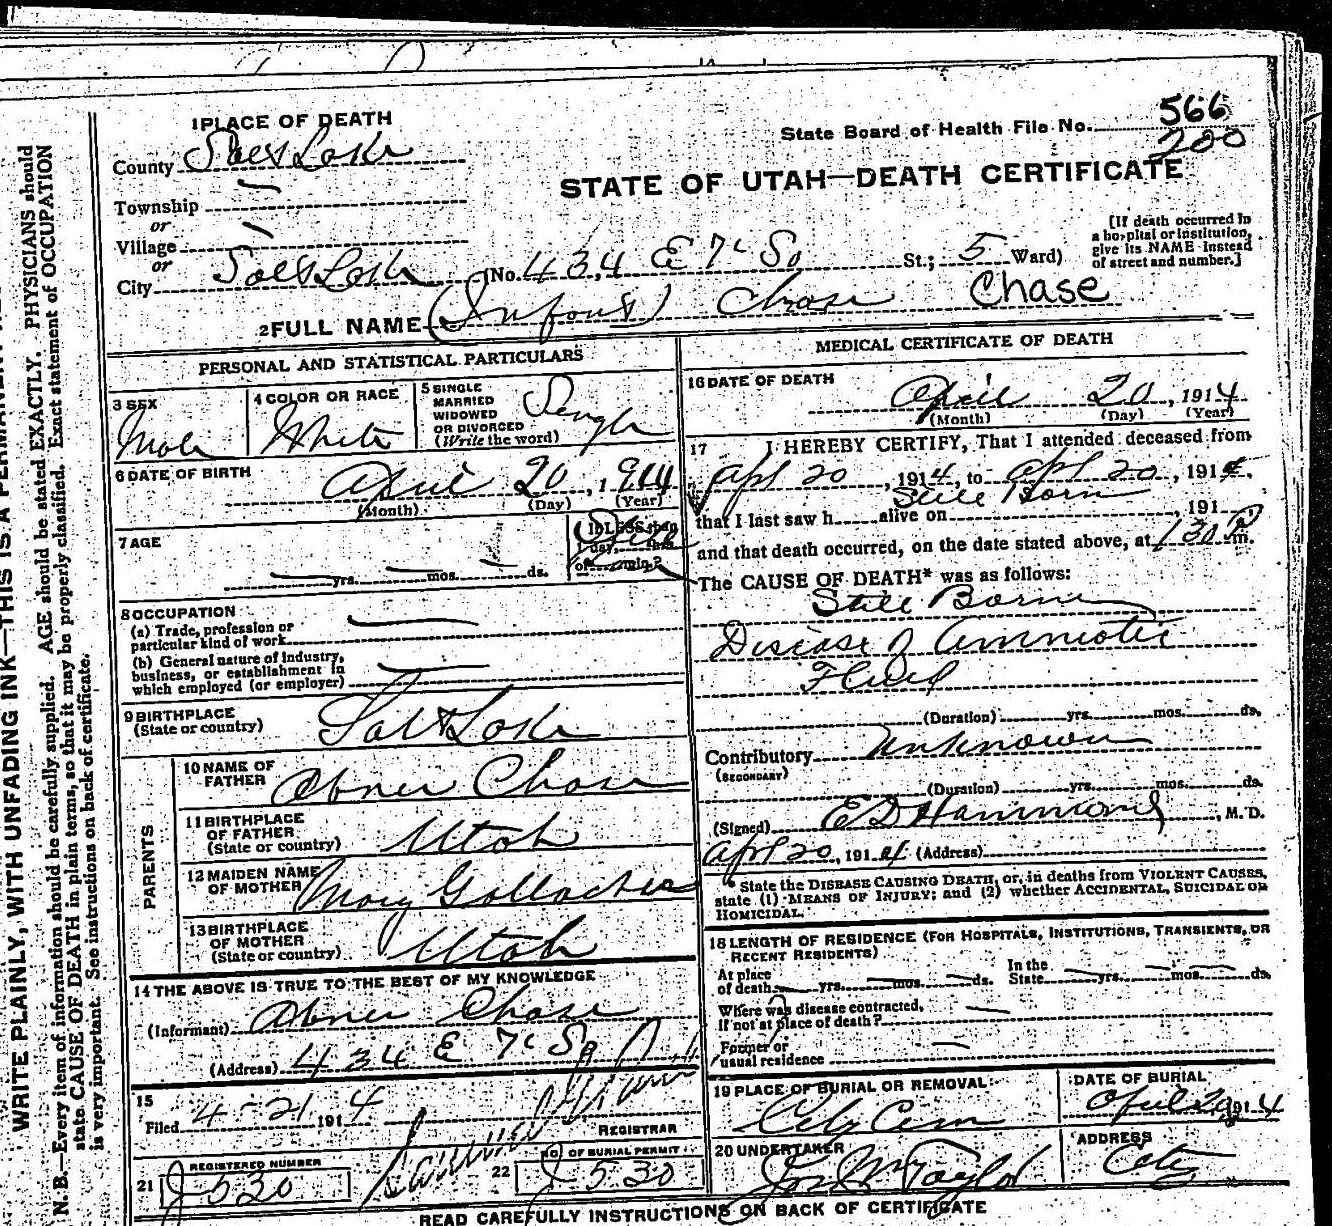 1 PLACE OF DEATH
County Salt Lake
Township
or
Village
or
City Salt Lake (No. 434 E 7th So St.; 5 Ward)
State Board of Health File No. 566
200
STATE OF UTAH—DEATH CERTIFICATE
[If death occurred in
a hospital or institution,
give its NAME instead
of street and number.]
2 FULL NAME (Infant) Chase Chase
PERSONAL AND STATISTICAL PARTICULARS
3 SEX Male
4 COLOR OR RACE White
5 SINGLE
MARRIED
WIDOWED
OR DIVORCED
(Write the word) Single
6 DATE OF BIRTH April 20, 1914
(Month) (Day) (Year)
7 AGE
yrs. mos. ds.
If LESS than
day, hrs.
or min.?
8 OCCUPATION
(a) Trade, profession or
particular kind of work
(b) General nature of industry,
business, or establishment in
which employed (or employer)
9 BIRTHPLACE
(State or country) Salt Lake
PARENTS
10 NAME OF
FATHER Abner Chase
11 BIRTHPLACE
OF FATHER
(State or country) Utah
12 MAIDEN NAME
OF MOTHER Mary Gallacher
13 BIRTHPLACE
OF MOTHER
(State or country) Utah
14 THE ABOVE IS TRUE TO THE BEST OF MY KNOWLEDGE
(Informant) Abner Chase
(Address) 434 E 7th So
15
Filed 4-21 1914
REGISTRAR
REGISTERED NUMBER
21 J 530
22 NO. OF BURIAL PERMIT
J 530
MEDICAL CERTIFICATE OF DEATH
16 DATE OF DEATH
April 20, 1914
(Month) (Day) (Year)
17 I HEREBY CERTIFY, That I attended deceased from
Apl 20, 1914, to Apl 20, 1914.
Still Born
that I last saw h alive on , 191
and that death occurred, on the date stated above, at 1 30 P m.
The CAUSE OF DEATH* was as follows:
Still Born
Disease of Amniotic
Fluid
(Duration) yrs. mos. ds.
Contributory Unknown
(SECONDARY)
(Duration) yrs. mos. ds.
(Signed) E D Hammond, M. D.
Apl 20, 1914 (Address)
* State the DISEASE CAUSING DEATH, or, in deaths from VIOLENT CAUSES,
state (1) MEANS OF INJURY; and (2) whether ACCIDENTAL, SUICIDAL OR
HOMICIDAL.
18 LENGTH OF RESIDENCE (FOR HOSPITALS, INSTITUTIONS, TRANSIENTS, OR
RECENT RESIDENTS)
At place
of death yrs. mos. ds.
In the
State yrs. mos. ds.
Where was disease contracted,
If not at place of death?
Former or
usual residence
19 PLACE OF BURIAL OR REMOVAL
City Cem
DATE OF BURIAL
April 1914
20 UNDERTAKER
Jos Wm Taylor
ADDRESS
City
READ CAREFULLY INSTRUCTIONS ON BACK OF CERTIFICATE
WRITE PLAINLY, WITH UNFADING INK—THIS IS A PERMANENT
N. B.—Every item of information should be carefully supplied. AGE should be stated EXACTLY. PHYSICIANS should
state CAUSE OF DEATH in plain terms, so that it may be properly classified. Exact statement of OCCUPATION
is very important. See instructions on back of certificate.